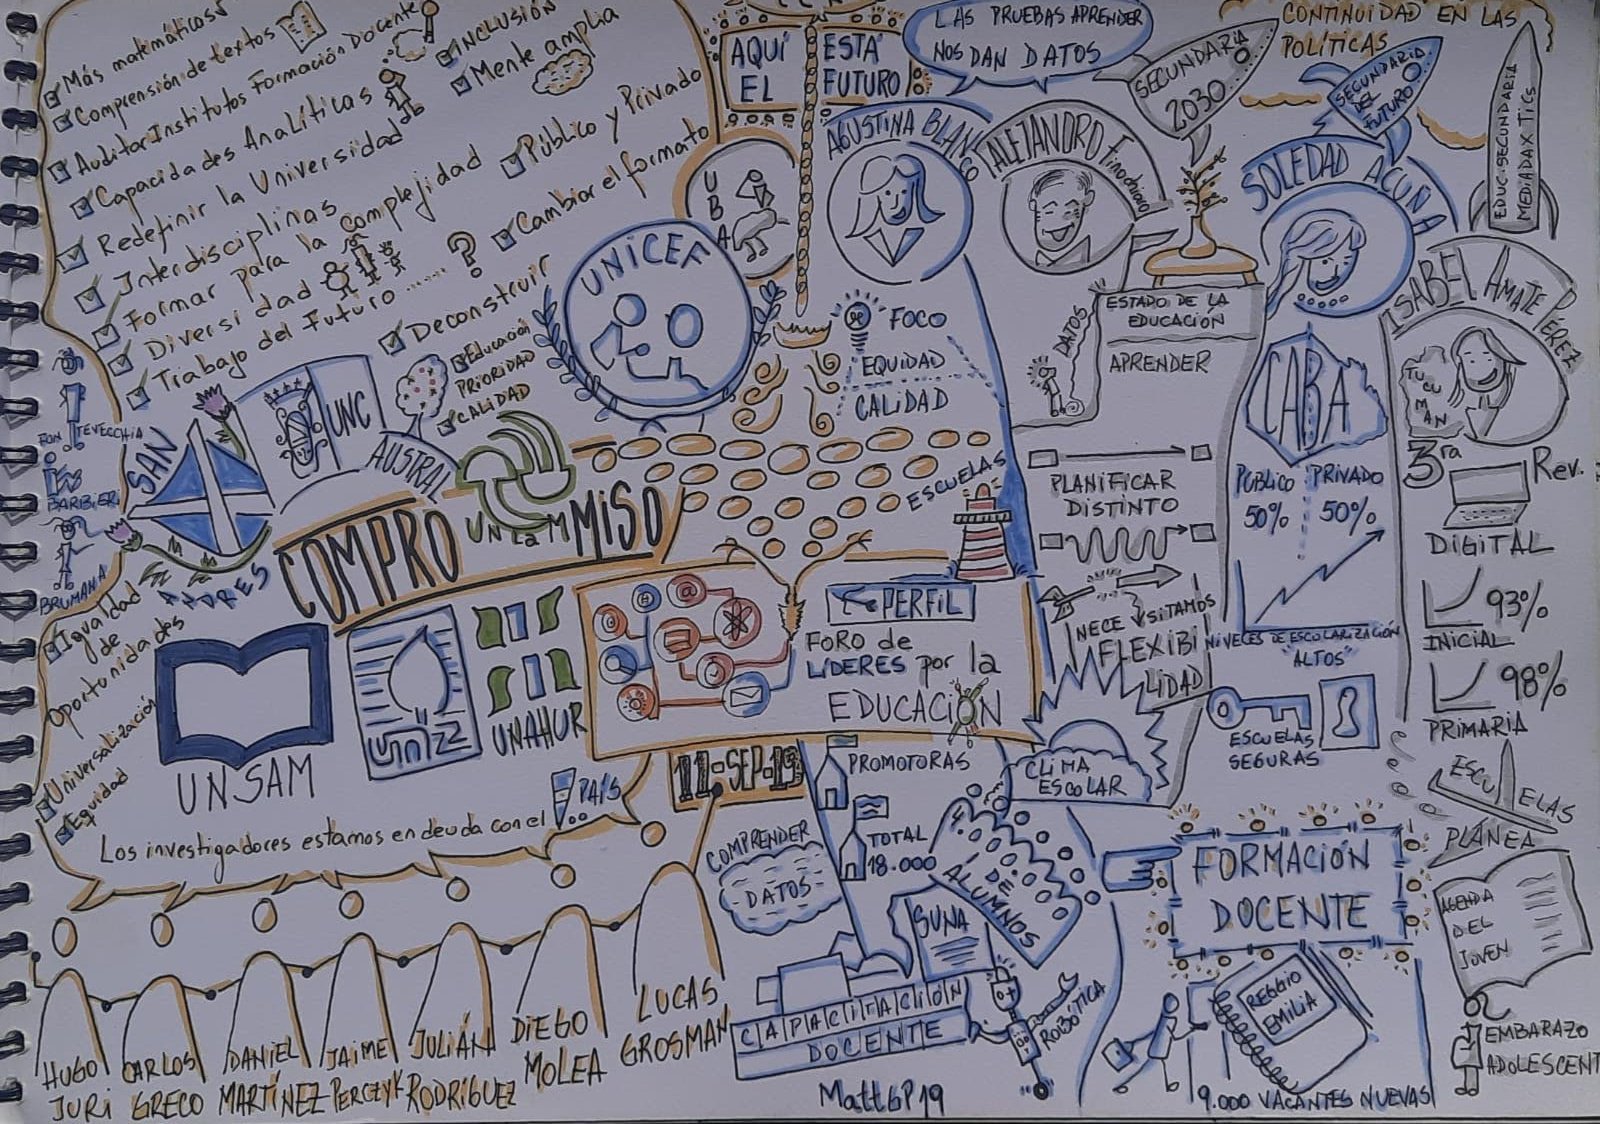 Más matemáticas
Comprensión de textos
Auditar Institutos Formación Docente
Capacidades Analíticas
Redefinir la Universidad
Interdisciplinas
Formar para la complejidad
Diversidad
Trabajo del Futuro ......?
INCLUSIÓN
Mente amplia
Público y Privado
Cambiar el formato
Deconstruir
Educación
PRIORIDAD
CALIDAD
FONTEVECCHIA
BARBIERI
BRUMANA
Igualdad
de
Oportunidades
Universalización
Equidad
SAN
ANDRES
UNC
AUSTRAL
UNLaM
COMPROMISO
UNSAM
UNAHUR
Los investigadores estamos en deuda con el PAÍS
HUGO
JURI
CARLOS
GRECO
DANIEL
MARTÍNEZ
JAIME
PERCZYK
JULIÁN
RODRÍGUEZ
DIEGO
MOLEA
LUCAS
GROSMAN
AQUÍ ESTÁ
EL FUTURO
UBA
UNICEF
LAS PRUEBAS APRENDER
NOS DAN DATOS
AGUSTINA BLANCO
FOCO
EQUIDAD
CALIDAD
ESCUELAS
PERFIL
FORO de
LÍDERES por la
EDUCACIÓN
11-SEP-19
PROMOTORAS
TOTAL
18.000
COMPRENDER
DATOS
DE
ALUMNOS
SUNA
CAPACITACIÓN
DOCENTE
ROBÓTICA
MattGP19
ALEJANDRO Finochiaro
SECUNDARIA
2030
DATOS
ESTADO DE LA
EDUCACIÓN
APRENDER
PLANIFICAR
DISTINTO
NECESITAMOS
FLEXIBI
LIDAD
CLIMA
ESCOLAR
CONTINUIDAD EN LAS
POLÍTICAS
SECUNDARIA
DEL
FUTURO
SOLEDAD ACUÑA
CABA
PÚBLICO PRIVADO
50% 50%
NIVELES DE ESCOLARIZACIÓN
"ALTOS"
ESCUELAS
SEGURAS
FORMACIÓN
DOCENTE
REGGIO
EMILIA
9.000 VACANTES NUEVAS
EDUC. SECUNDARIA
MEDIADA X TICs
ISABEL AMATE PÉREZ
TUCUMAN
3ra Rev.
DIGITAL
93%
INICIAL
98%
PRIMARIA
ESCUELAS
PLANEA
AGENDA
DEL
JOVEN
EMBARAZO
ADOLESCENT